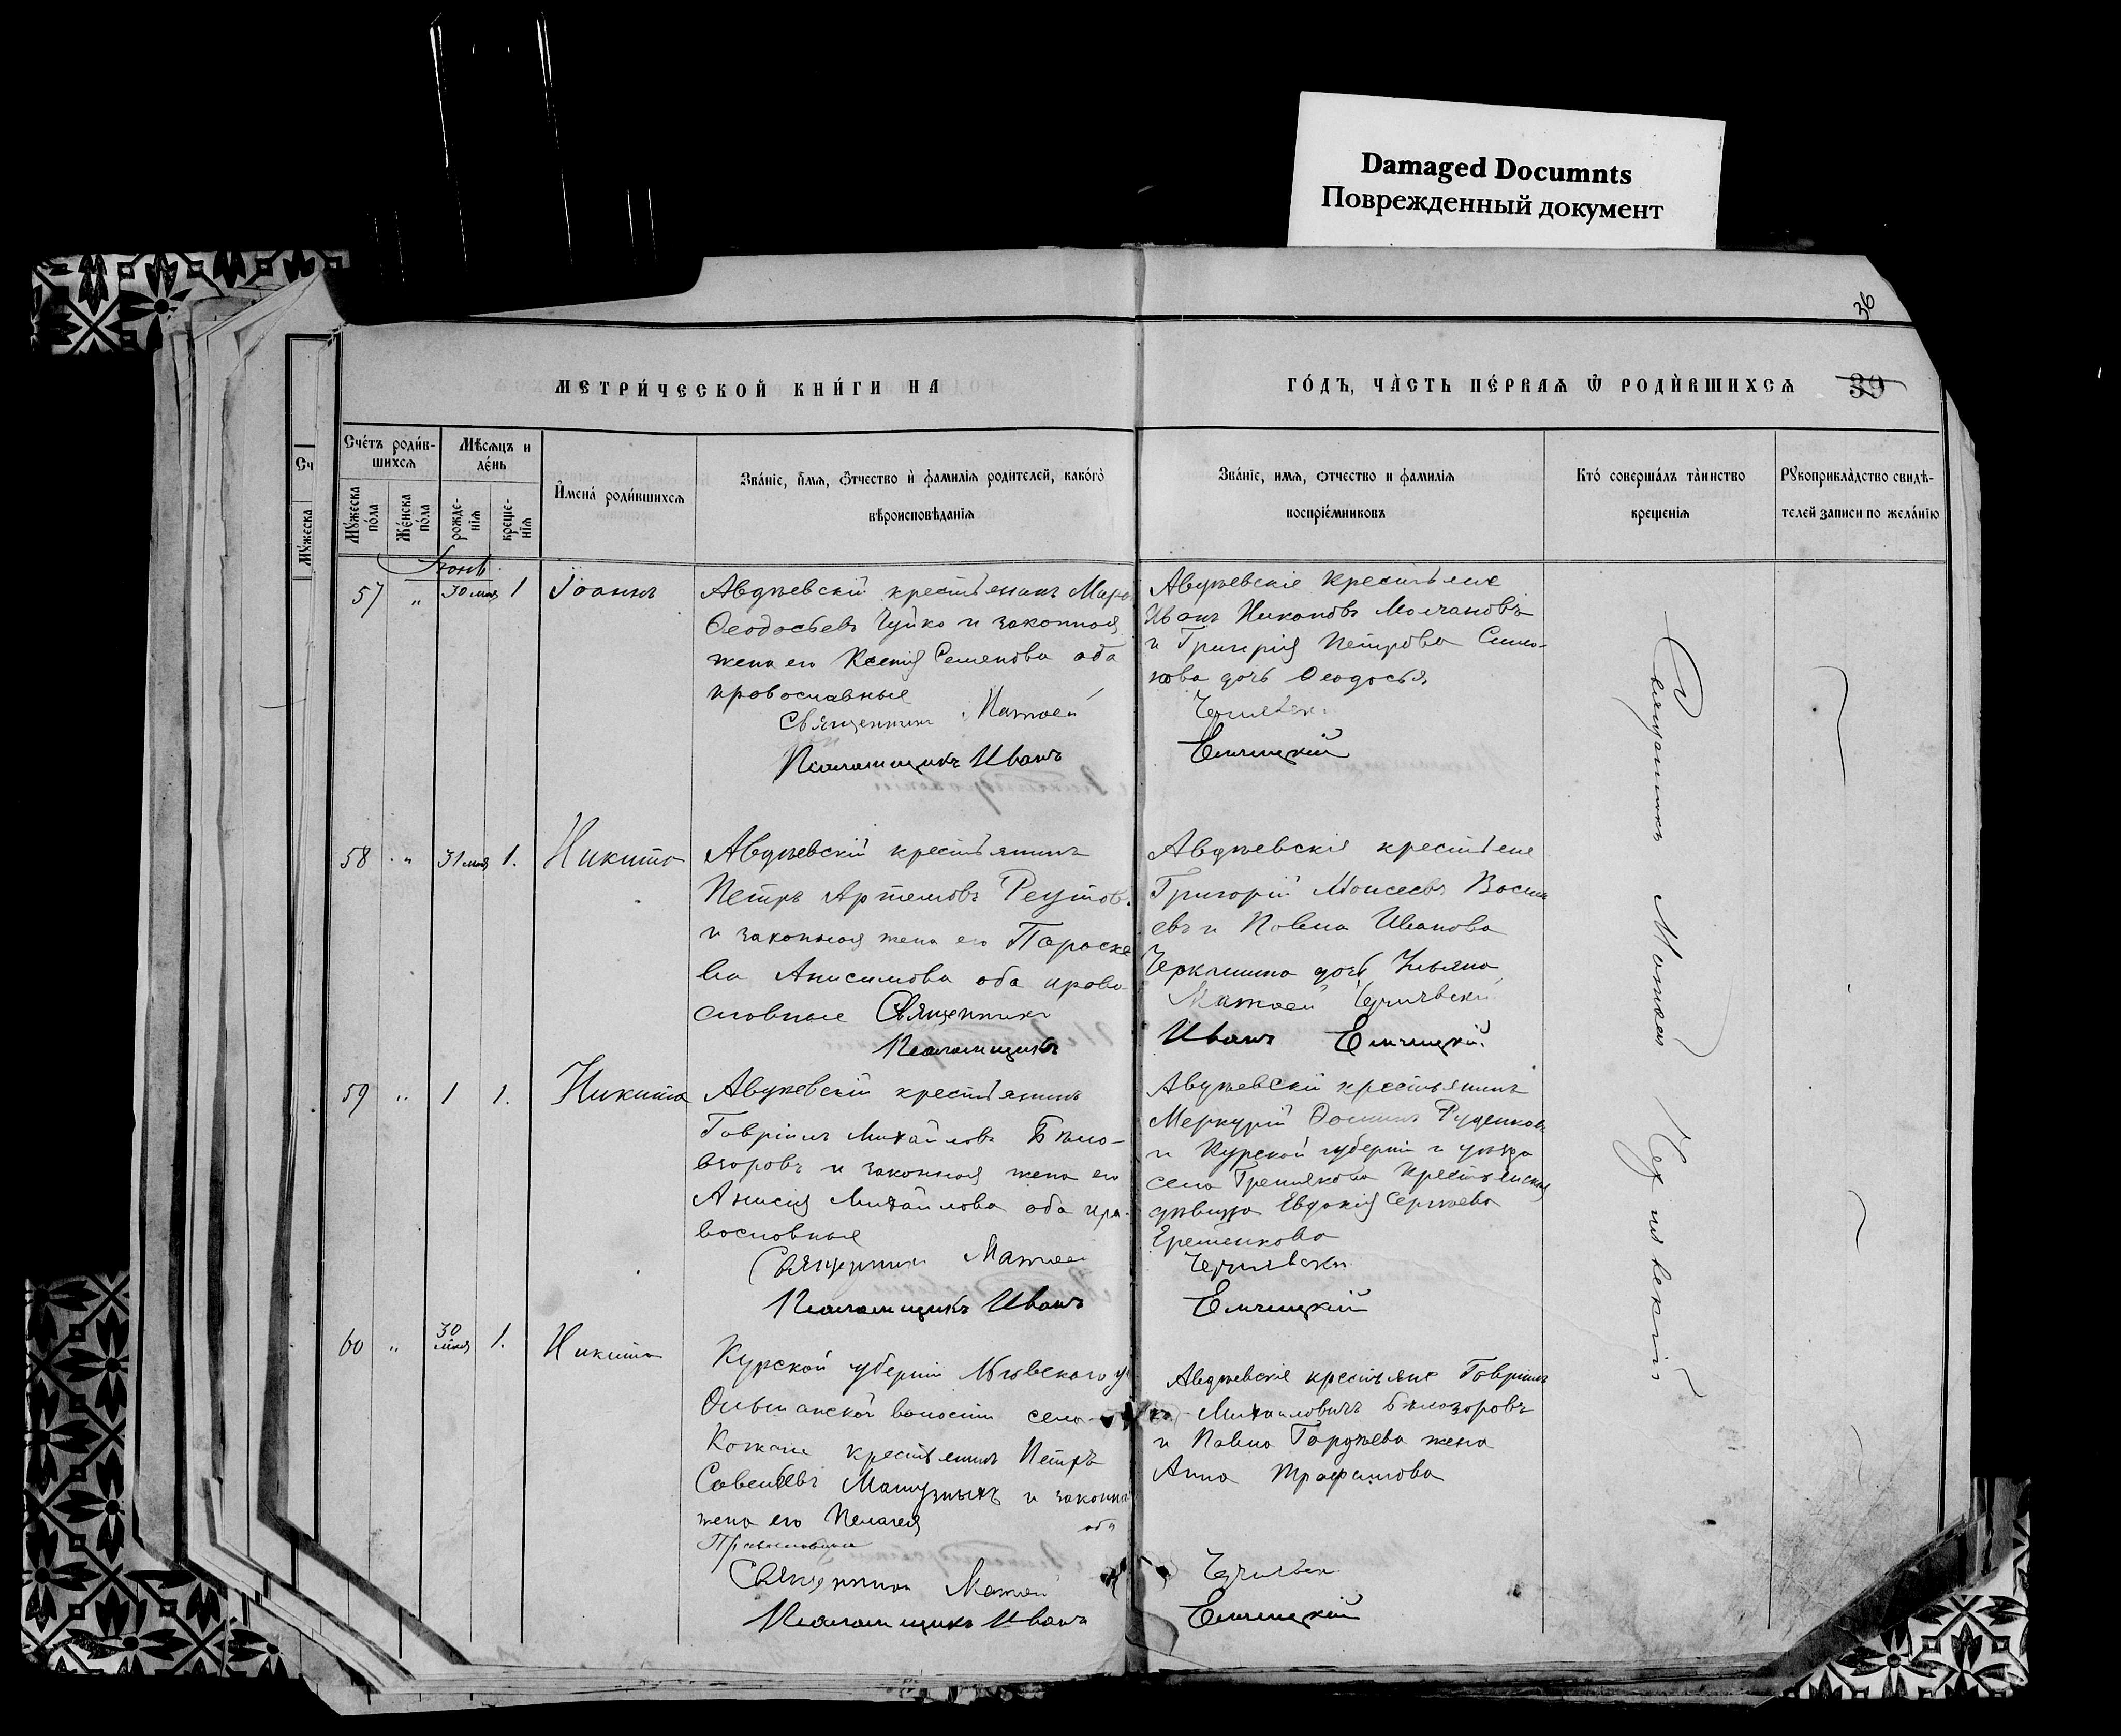 Damaged Documnts
Поврежденный документ
36
МЕТРИ́ЧЕСКОЙ КНИ́ГИ НА
ГО́ДЪ, ЧА̀СТЬ ПЕ́РВАѦ Ѿ РОДИ́ВШИХСѦ
39
Сч
Мꙋ́жеска
Сче́тъ роди́в-
шихсѧ
Мꙋ́жеска
по́ла
Же́нска
по́ла
Мѣ́сѧцъ и
де́нь
рожде-
нїѧ
креще-
нїѧ
И҆мена̀ роди́вшихсѧ
Зва́нїе, и҆́мѧ, ѻ҆́тчество и҆ фамилїѧ роди́телей, како́гѡ
вѣроисповѣ́данїѧ
Зва́нїе, имѧ, ѻтчество и фамилїѧ
воспрїе́мниковъ
Кто́ соверша́лъ та̀инство
креще́нїѧ
Рꙋкоприкла́дство свидѣ́-
телей записи по жела́нїю
Іюнь
57 " 30 мая 1 Іоаннъ
Авдѣевскій крестьянинъ
Ѳеодосьевъ Чуйко и законная
жена его Ксенія Семенова оба
православные
Священникъ Матѳей
Псаломщикъ Иванъ
Авдѣевскіе крестьяне
Иванъ Никоновъ Молчановъ
и Григорія Петрова
дочь Ѳеодосья.
58 " 31 мая 1. Никита
Авдѣевскій крестьянинъ
Петръ Артемовъ Реутов.
и законная жена его Параске
ва Анисимова оба право-
славные Священникъ
Псаломщикъ
Авдѣевскія крестьяне
Григорій Моисеевъ
евъ и Павла Иванова
дочь Ульяна
Матѳей
Иванъ
59 " 1 1. Никита
Авдѣевскій крестьянинъ
Гавріилъ Михайловъ Бѣло-
взоровъ и законная жена его
Анисія Михайлова оба пра-
вославные
Священникъ Матѳей
Псаломщикъ Иванъ
Авдѣевскій крестьянинъ
Меркурій Ѳоминъ Руденковъ
и Курской губерніи и уѣзда
села крестьянская
дѣвица Евдокія Сергѣева
Еременкова
60 " 30 мая 1. Никита
Курской губерніи Льговскаго у
Ольшанской волости села
крестьянинъ Петръ
Савельевъ и законна
жена его Пелагея оба
Православные
Священникъ Матѳей
Псаломщикъ Иванъ
Авдѣевскіе крестьяне Гавріилъ
Михайловичъ Бѣлозоровъ
и Павла Гордѣева жена
Анна Трофимова
Священникъ Матѳей